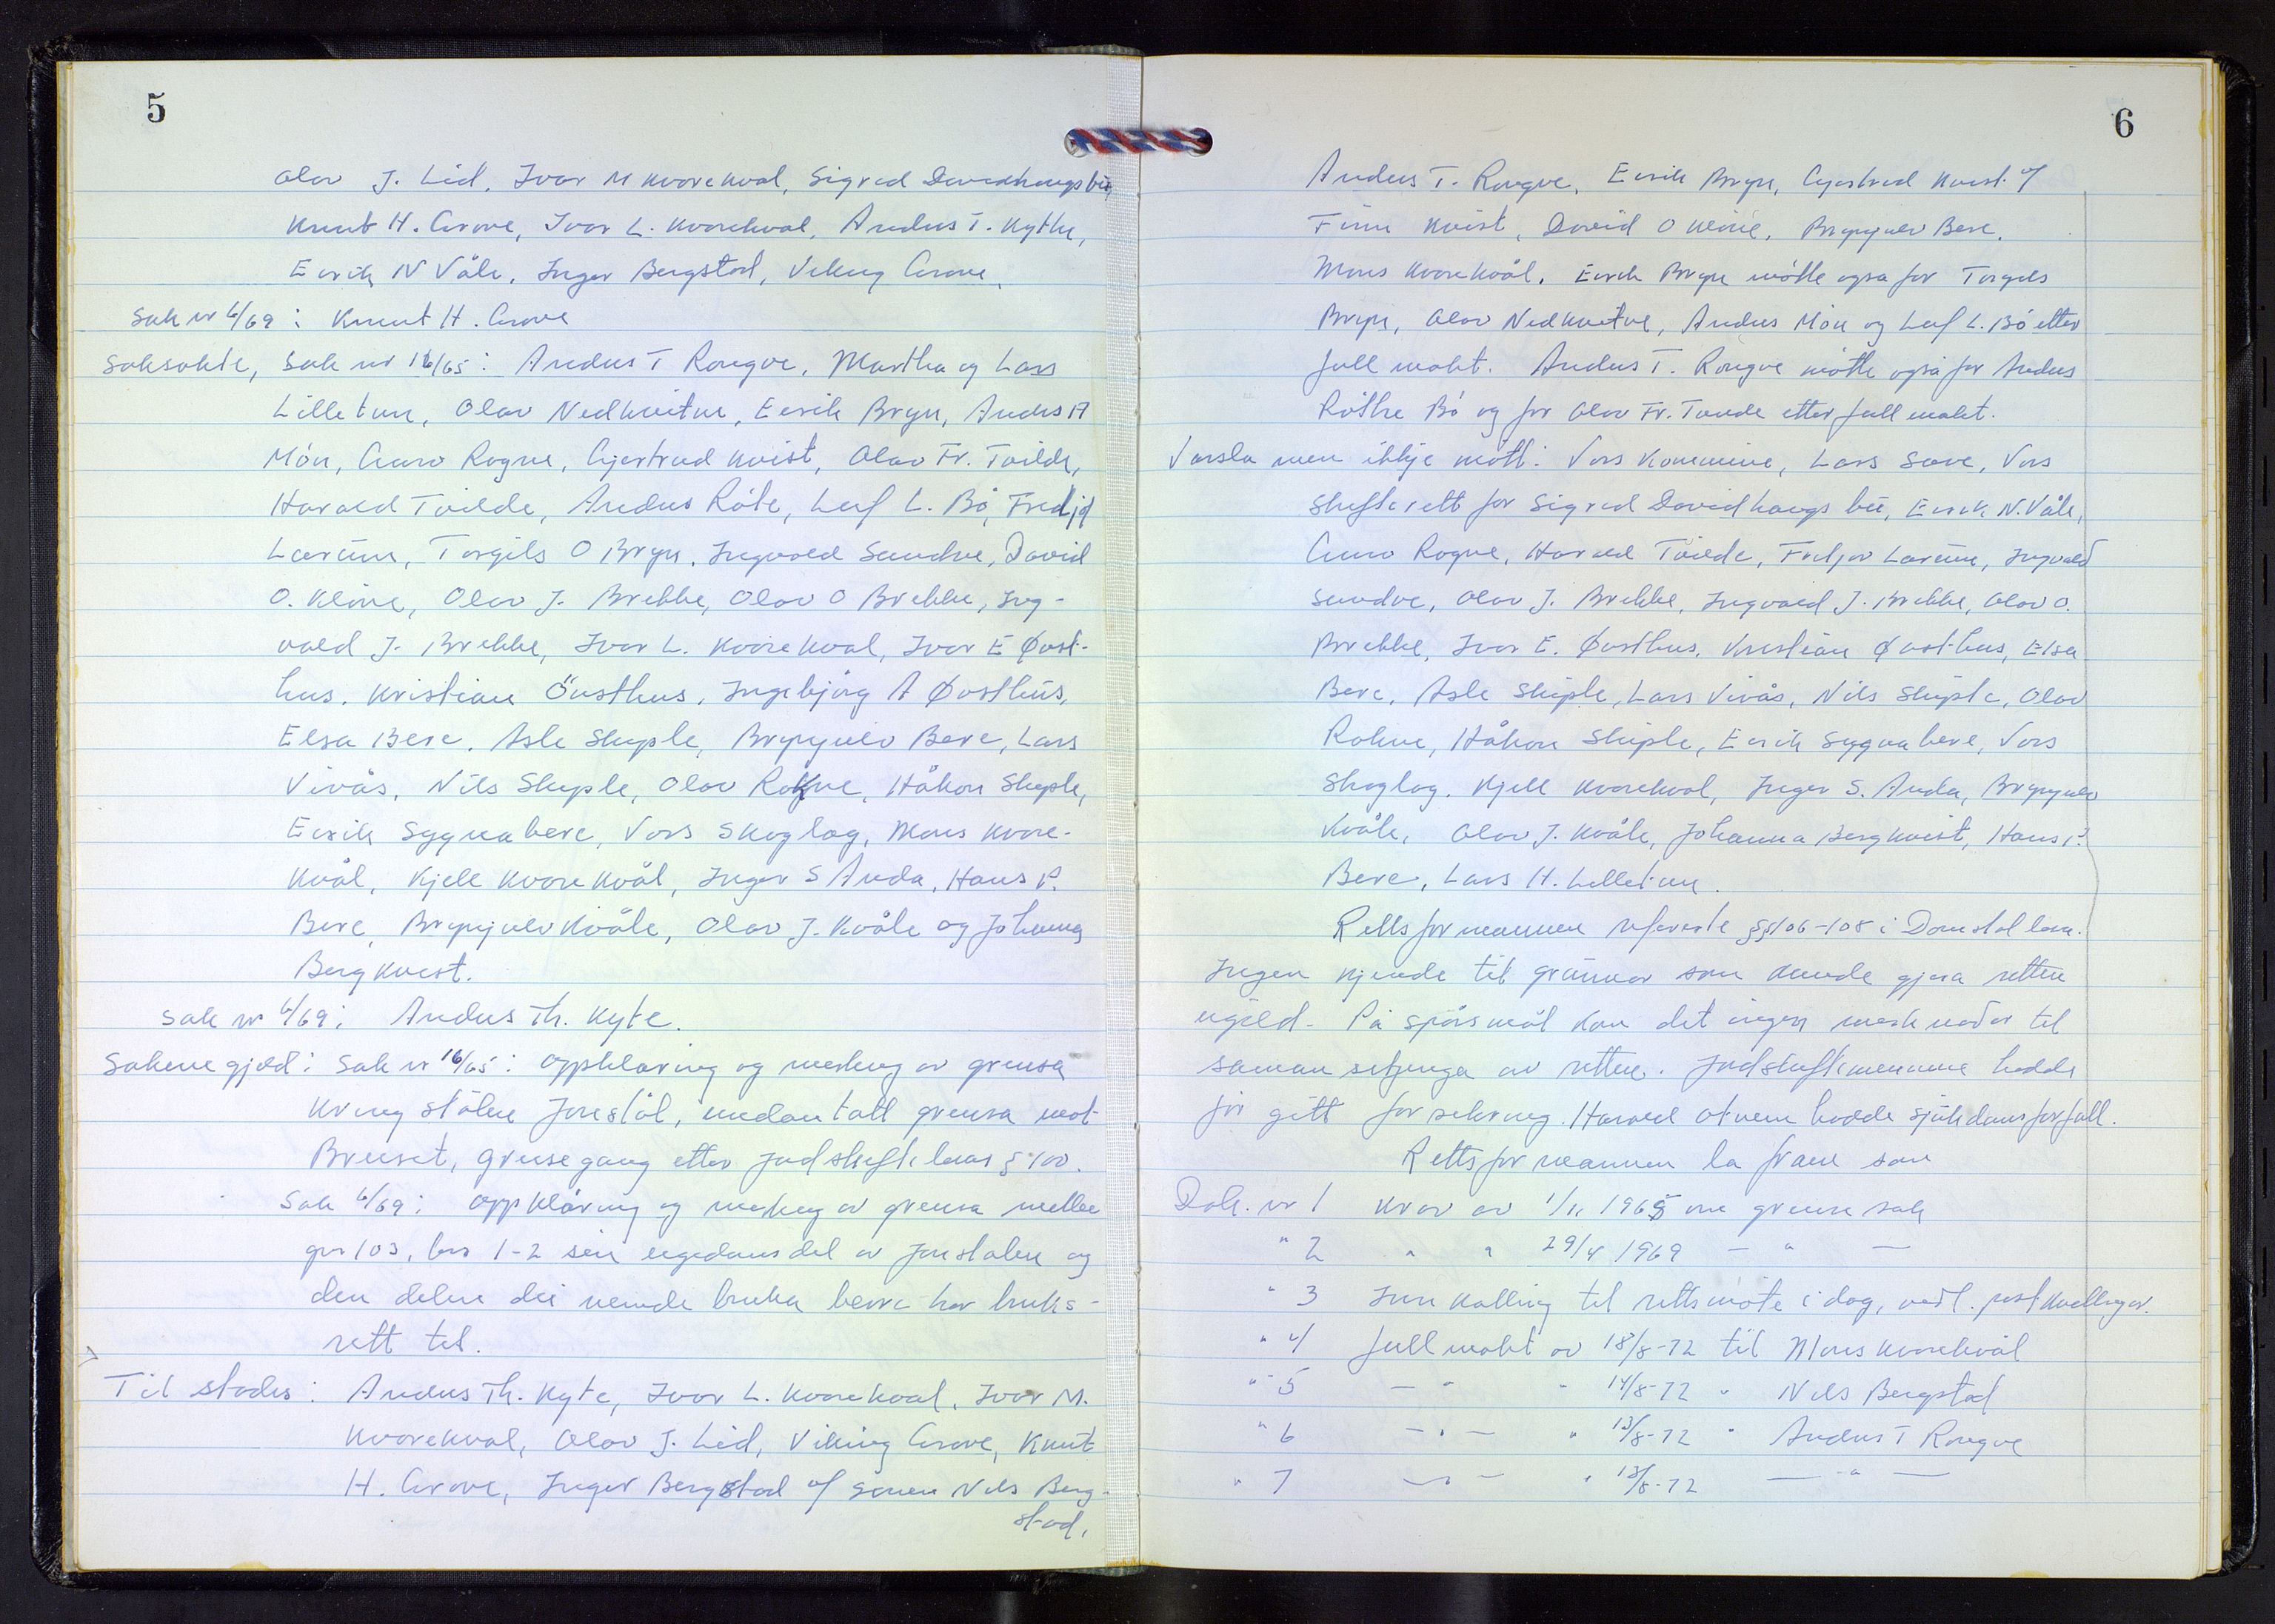 5
Olav J. Lid, Ivar M Kvorekvål, Sigrid Davidhaugs bu,
Knut H. Grove, Ivar L. Kvorekval, Anders T. Kythe,
Eirik N Våle, Inger Bergstad, Viking Grove,
Sak nr 6/69: Knut H. Grove
Saksøkte, Sak nr 16/65: Anders T Rongve, Martha og Lars
Lilletun, Olav Nedkvitne, Eirik Bryn, Anders A
Møn, Guro Rogne, Gjertrud Kvist, Olav Fr. Tvilde,
Harald Tvilde, Anders Røte, Leif L. Bø, Fredjof
Larune, Torgils O Bryn, Ingvald Sundve, David
O. Kløve, Olav J. Brekke, Olav O Brekke, Ing-
vald J. Brekke, Ivar L. Kvorekval, Ivar E Øvst-
hus, Kristian Övsthus, Ingebjørg A Øvsthus,
Elsa Bere, Asle Skiple, Brynjulv Bere, Lars
Vivås, Nils Skiple, Olav Rokne, Håkon Skiple,
Eirik Sygnabere, Vors Skoglag, Mons Kvore-
kvål, Kjell Kvorekvål, Inger S Anda, Hans P.
Bere, Brynjulv Kvåle, Olav J. Kvåle og Johanna
Bergkvist.
Sak nr 6/69: Anders Th. Kyte.
Sakene gjeld: Sak nr 16/65: Oppklaring og merking av grensa
kring stølen Jonstøl, undantatt grensa mot
Bruset, grensegang etter jordskiftelova § 100.
Sak 6/69: Oppklåring og merking av grensa mellom
gnr 103, bnr 1-2 sin eigedomsdel av Jonstølen og
den delen dei nemde bruka berre har bruks-
rett til.
Til stades: Anders Th. Kyte, Ivar L. Kvorekval, Ivar M.
Kvorekval, Olav J. Lid, Viking Grove, Knut
H. Grove, Inger Bergstad v/ sonen Nils Berg-
stad,
6
Anders T. Rongve, Eirik Bryn, Gjertrud Kvist v/
Finn Kvist, David O Kløve, Brynjulv Bere,
Mons Kvorekvål. Eirik Bryn møtte også for Torgils
Bryn, Olav Nedkvitne, Anders Møn og Leif L. Bø etter
fullmakt. Anders T. Rongve møtte også for Anders
Røthe Bø og for Olav Fr. Tvilde etter fullmakt.
Varsla men ikkje møtt: Vors Kommune, Lars Sæve, Vors
Skifterett for Sigrid Davidhaugs bu, Eirik N. Våle,
Guro Rogne, Harald Tvilde, Fritjov Larune, Ingvald
Sundve, Olav J. Brekke, Ingvald J. Brekke, Olav O.
Brekke, Ivar E. Øvsthus, Kristian Øvsthus, Elsa
Bere, Asle Skiple, Lars Vivås, Nils Skiple, Olav
Rokne, Håkon Skiple, Eirik Sygnabere, Vors
Skoglag, Kjell Kvorekval, Inger S. Anda, Brynjulv
Kvåle, Olav J. Kvåle, Johanna Bergkvist, Hans P.
Bere, Lars H. Lilletun.
Rettsformannen refererte §§ 106-108 i Domstollova.
Ingen kjende til grunnar som kunde gjera retten
ugild. På spørsmål kom det ingen merknader til
samansetjinga av retten. Jordskiftemennene hadde
før gitt forsikring. Harald hadde sjukdomsforfall.
Rettsformannen la fram som
Dok. nr 1 Krav av 1/11 1965 om grensesak
" 2 " " 29/4 1969 — " —
" 3 Innkalling til rettsmøte i dag, vedl. postkvitteringar.
" 4 Fullmakt av 18/8-72 til Mons Kvorekvål
" 5 — " " 14/8-72 " Nils Bergstad
" 6 — " — " 13/8-72 " Anders T Rongve
" 7 — " — " 13/8-72 — " —